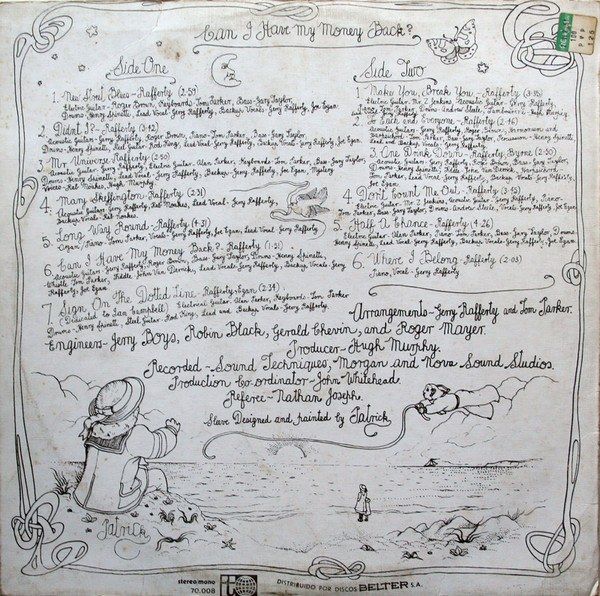 Can I Have My Money Back?
Side One
1. New Street Blues - Rafferty (2:59)
Electric Guitar - Roger Brown, Keyboards - Tom Parker, Bass - Gary Taylor,
Drums - Henry Spinetti, Lead Vocal - Jerry Rafferty, Backup Vocals - Jerry Rafferty, Joe Egan.
2. Didn't I? - Rafferty (3:42)
Acoustic Guitar - Jerry Rafferty, Roger Brown, Piano - Tom Parker, Bass - Gary Taylor,
Drums - Henry Spinetti, Steel Guitar - Rod King, Lead Vocal - Jerry Rafferty, Backup Vocals - Jerry Rafferty, Joe Egan.
3. Mr. Universe - Rafferty (2:50)
Acoustic Guitar - Jerry Rafferty, Electric Guitar - Alan Parker, Keyboards - Tom Parker, Bass - Gary Taylor,
Drums - Henry Spinetti, Lead Vocal - Jerry Rafferty, Backup - Jerry Rafferty, Joe Egan, Mystery
Voices - Rab Noakes, Hugh Murphy.
4. Mary Skeffington - Rafferty (2:31)
Acoustic Guitar - Jerry Rafferty, Rab Noakes, Lead Vocal - Jerry Rafferty,
Backup Vocals - Rab Noakes.
5. Long Way Round - Rafferty (4:31)
Organ, Piano - Tom Parker, Vocals - Jerry Rafferty, Joe Egan, Lead Vocal - Jerry Rafferty.
6. Can I Have My Money Back? - Rafferty (1:21)
Acoustic Guitar - Jerry Rafferty, Roger Brown, Bass - Gary Taylor, Drums - Henry Spinetti,
Whistle Tom Parker, Fiddle John Van Derrick, Lead Vocal - Jerry Rafferty, Backup Vocals - Jerry
Rafferty, Joe Egan
7. Sign On The Dotted Line - Rafferty, Egan (2:34)
(Dedicated to Ian Campbell) Electrical Guitar - Alan Parker, Keyboards - Tom Parker
Drums - Henry Spinetti, Steel Guitar - Rod King, Lead and Backup Vocals - Jerry Rafferty, Joe Egan.
Side Two
1. Make You, Break You - Rafferty (3:35)
Electric Guitar - Mr. Z Jenkins, Acoustic Guitar - Jerry Rafferty,
Piano - Tom Parker, Bass - Gary Taylor, Drums - Andrew Steele, Hugh Murphy,
Lead Vocals - Jerry Rafferty.
2. To Each and Everyone - Rafferty (2:46)
Acoustic Guitar - Jerry Rafferty, Roger Brown, Harmonium and
Harpsichord - Tom Parker, Bass - Gary Taylor, Percussion - Henry Spinetti
Lead and Backup Vocals - Jerry Rafferty.
3. One Drink Down - Rafferty, Byrne (2:50)
Acoustic Guitar - Jerry Rafferty, Roger Brown, Bass - Gary Taylor,
Drums - Henry Spinetti, Fiddle John Van Derrick, Harpsichord
Tom Parker, Lead Vocal - Jerry Rafferty, Backup Vocals - Jerry Rafferty,
Joe Egan
4. Don't Count Me Out - Rafferty (3:52)
Electric Guitar - Mr. Z Jenkins, Acoustic Guitar - Jerry Rafferty, Piano
Tom Parker, Bass - Gary Taylor, Drums Andrew Steele, Vocals - Jerry Rafferty, Joe Egan.
5. Half A Chance - Rafferty (4:26)
Electric Guitar - Alan Parker, Piano - Tom Parker, Bass - Gary Taylor, Drums - Henry
Spinetti, Lead Vocal - Jerry Rafferty, Backup Vocals - Jerry Rafferty, Joe Egan.
6. Where I Belong - Rafferty (2:03)
Piano, Vocal - Jerry Rafferty
Arrangements - Jerry Rafferty and Tom Parker.
Engineers - Jerry Boys, Robin Black, Gerald Chevin, and Roger Mayer.
Producer - Hugh Murphy.
Recorded - Sound Techniques, Morgan and Nova Sound Studios.
Production Co-ordinator - John Whitehead.
Referee - Nathan Joseph.
Sleve Designed and painted by Patrick
Patrick
stereo mono
70.008
t
DISTRIBUIDO POR DISCOS BELTER S.A.